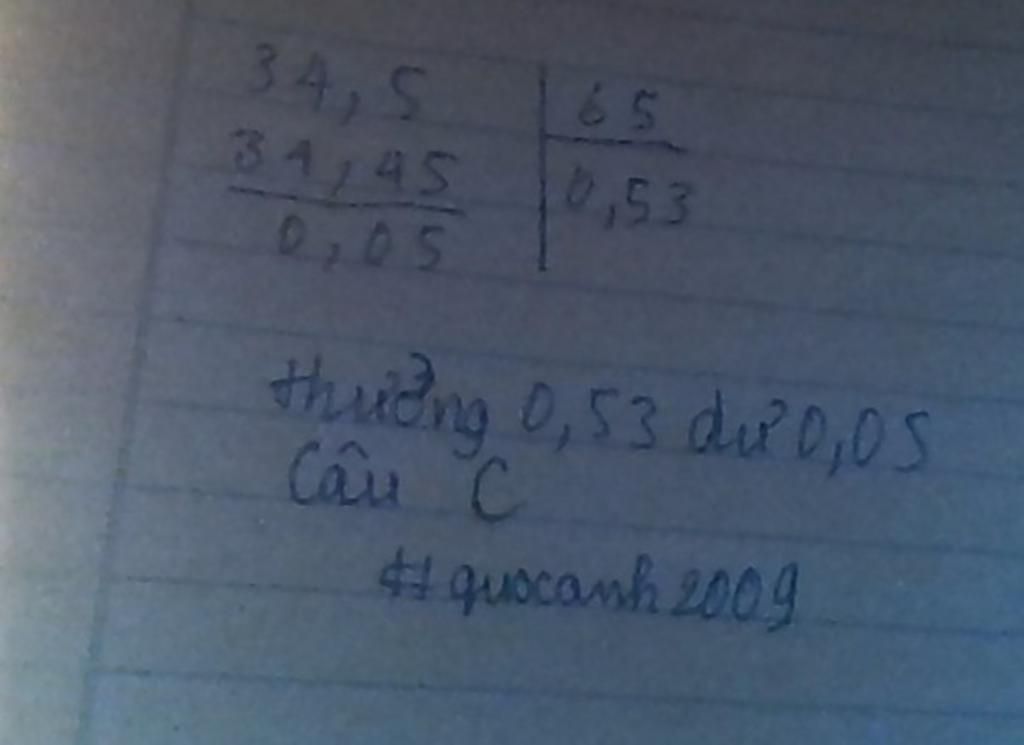 34,5 65
34,45 0,53
0,05
thưởng 0,53 dư 0,05
Câu C
#quocanh2009